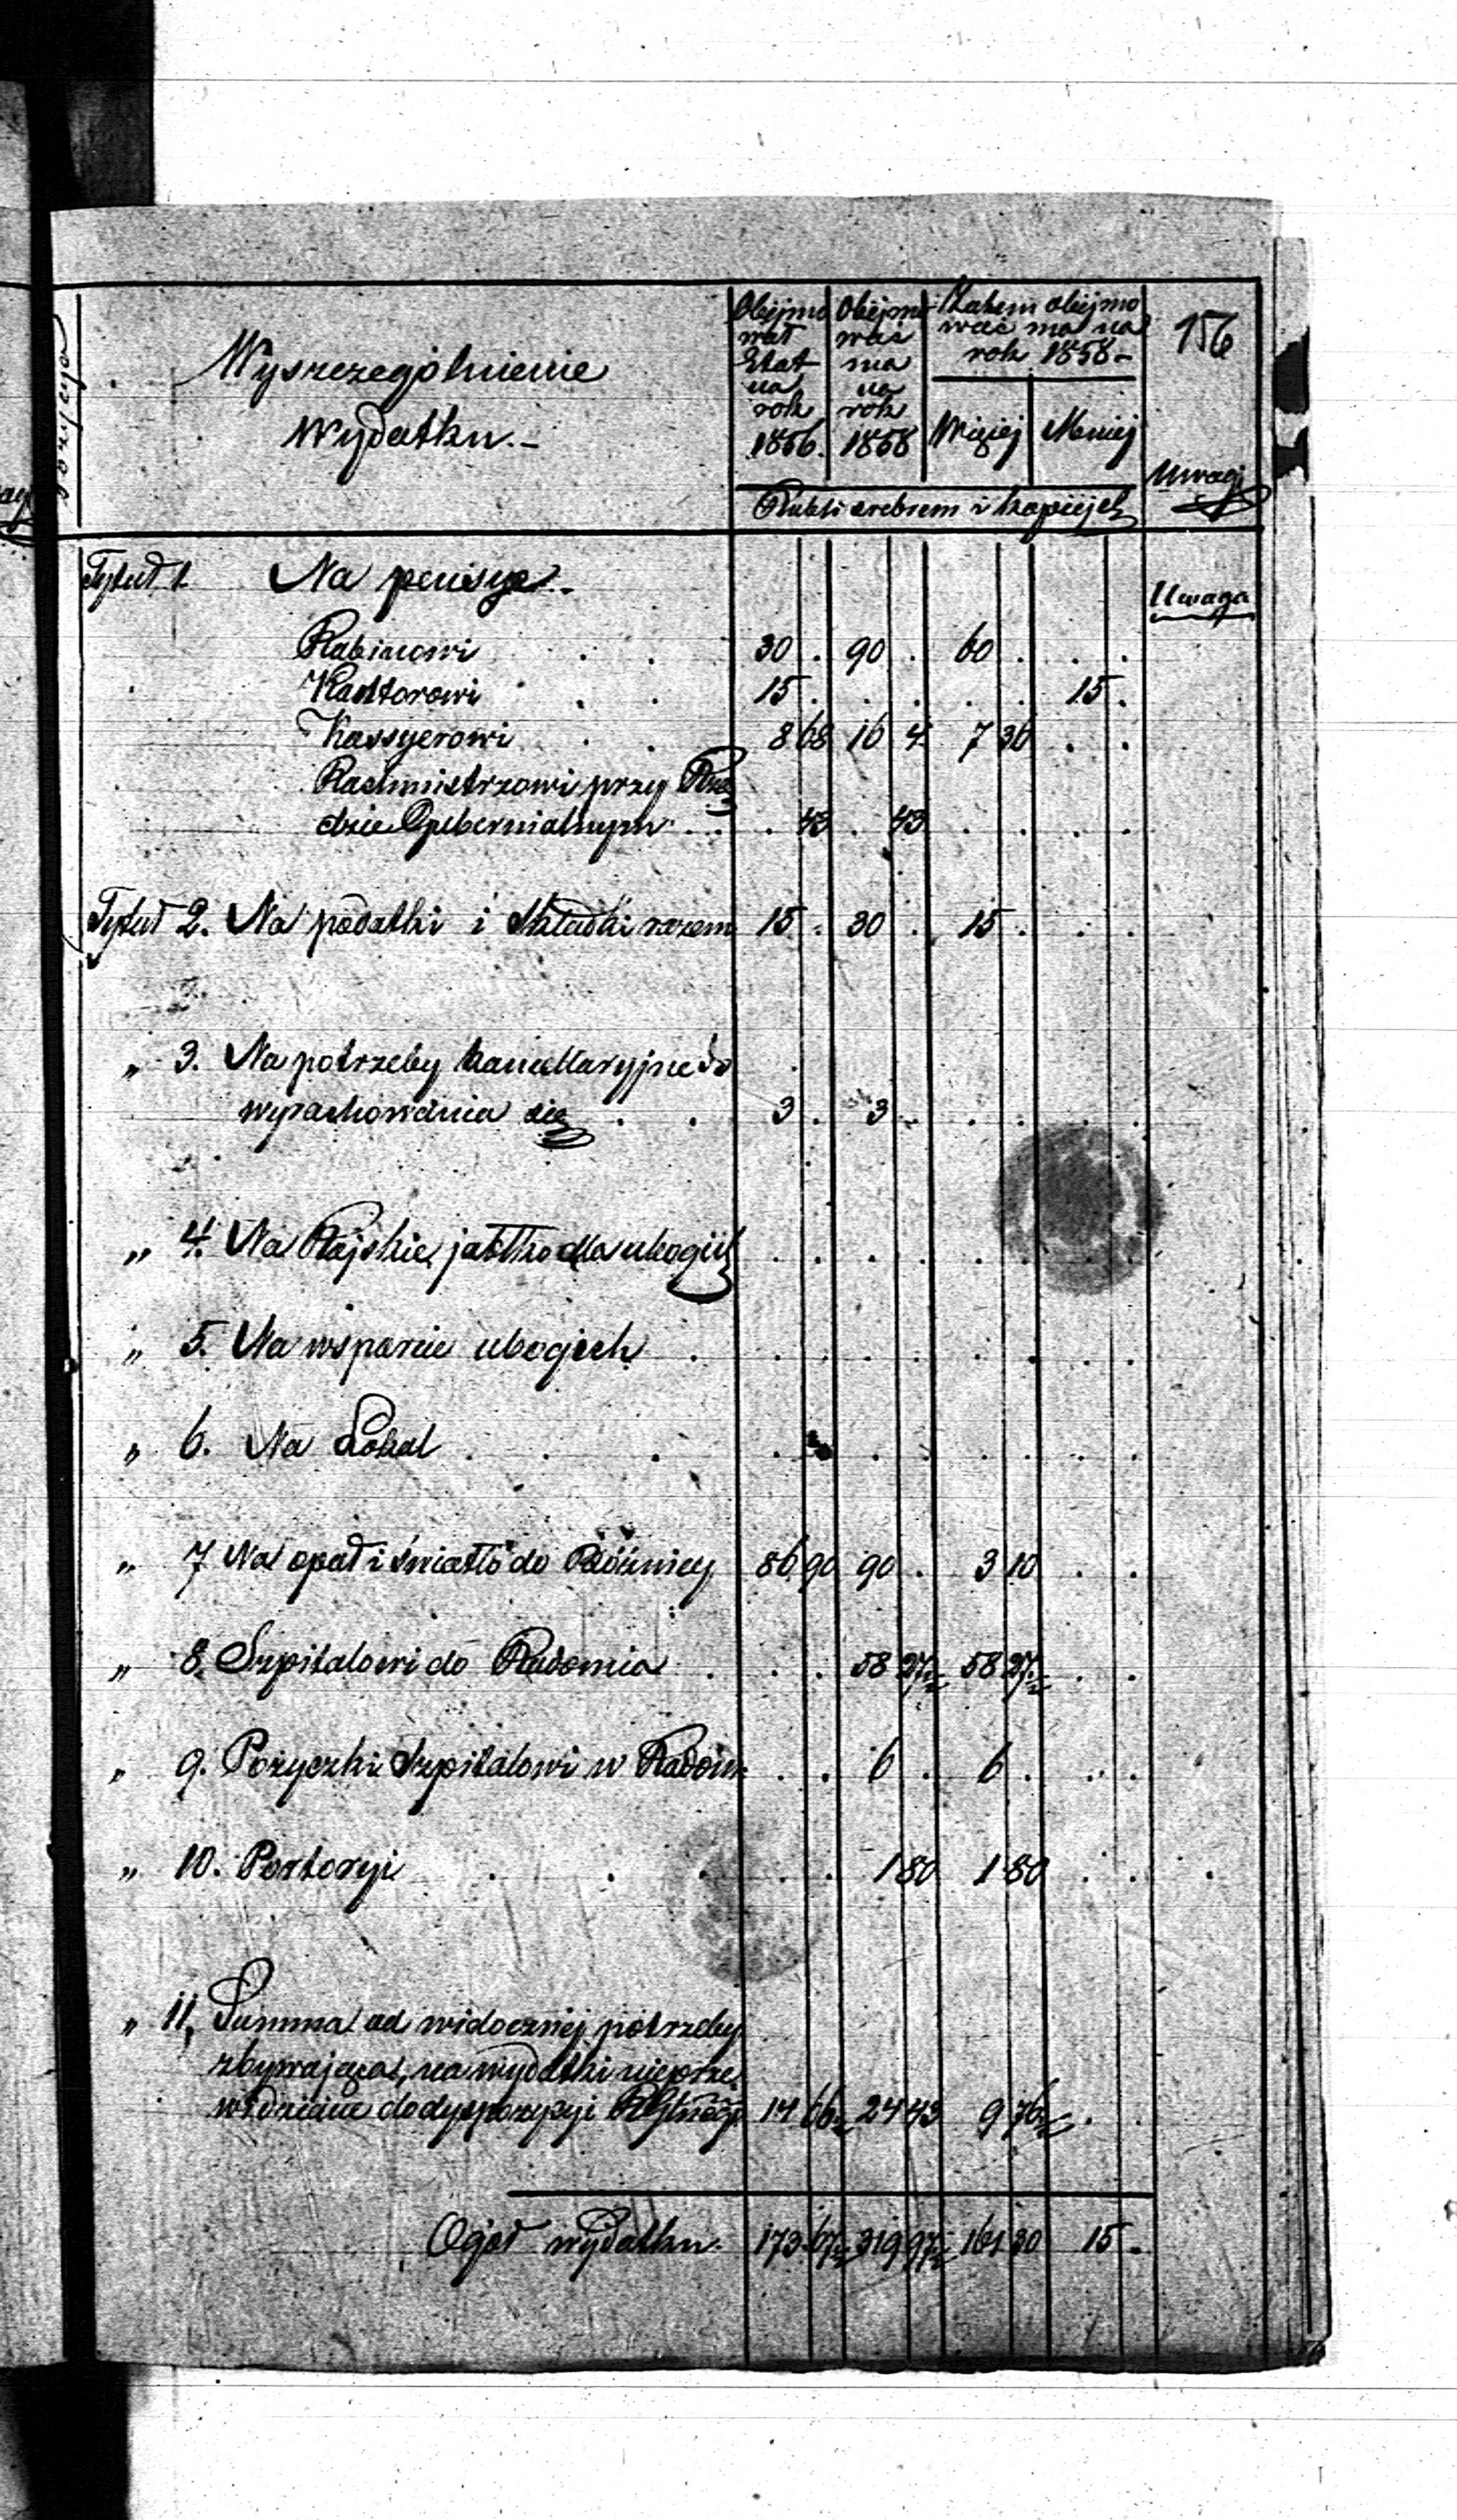 156
Wyszczególnienie
Wydatku.-
Obejmo
wał
Etat
na
rok
1856.
Obejmo
wać
ma
na
rok
1858
Zatem obejmo
wać ma na
rok 1858-
Więcej Mniej
Uwagi
Rubli srebrem i kopiejek
Tytuł 1. Na pensye.-
Uwaga
Rabinowi . . 30 . 90 . 60 . . .
Kantorowi . . 15 . . . . . 15 .
Kassyerowi . . 8 68 16 4 7 36 . .
Rachmistrzowi przy Rzą
dzie Gubernialnym . . . 43 . 43 . . . .
Tytuł 2. Na podatki i Składki razem 15 . 30 . 15 . . .
„ 3. Na potrzeby kancellaryjne do
wyrachowania się . . 3 . 3 . . . . .
„ 4. Na Rajskie jabłko dla ubogich . . . . . . . .
„ 5. Na wsparcie ubogich . . . . . . . . .
„ 6. Na Lokal . . . . . . . . . .
„ 7 Na opał i światło do Bóżnicy 86 90 90 . 3 10 . .
„ 8. Szpitalowi do Radomia . . . 58 27½ 58 27½ . .
„ 9. Pożyczki Szpitalowi w Radom . . 6 . 6 . . .
„ 10. Portoryi . . . . . 1 80 1 80 . . .
„ 11. Summa od widocznéj potrzeby
zbywająca, na wydatki nieprze
widziane do dyspozycyi 14 66½ 24 43 9 76½ . .
Ogół wydatku. 173 67½ 319 97½ 161 30 15 .